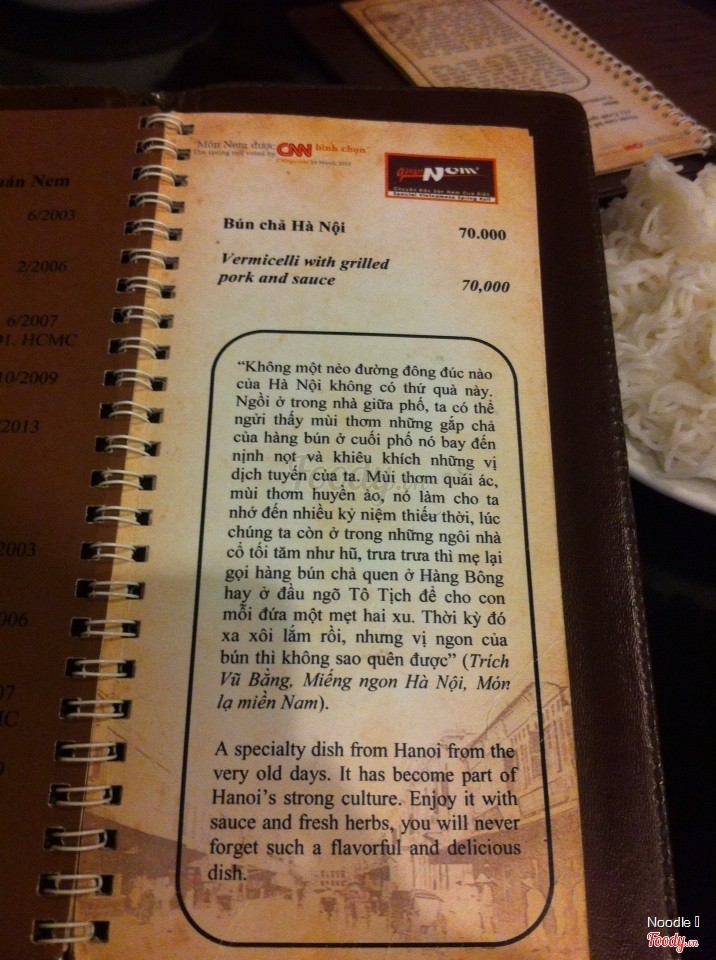 "Món Nem được CNN bình chọn"
The spring roll voted by
quán Nem
Chuyên Đặc Sản Nem Cua Biển
Special Vietnamese Spring Roll
uán Nem
6/2003
2/2006
6/2007
01. HCMC
10/2009
2013
2003
006
07
MC
9
Bún chả Hà Nội 70.000
Vermicelli with grilled
pork and sauce 70,000
"Không một nẻo đường đông đúc nào
của Hà Nội không có thứ quà này.
Ngồi ở trong nhà giữa phố, ta có thể
ngửi thấy mùi thơm những gắp chả
của hàng bún ở cuối phố nó bay đến
nịnh nọt và khiêu khích những vị
dịch tuyến của ta. Mùi thơm quái ác,
mùi thơm huyền ảo, nó làm cho ta
nhớ đến nhiều kỷ niệm thiếu thời, lúc
chúng ta còn ở trong những ngôi nhà
cổ tối tăm như hũ, trưa trưa thì mẹ lại
gọi hàng bún chả quen ở Hàng Bông
hay ở đầu ngõ Tô Tịch để cho con
mỗi đứa một mẹt hai xu. Thời kỳ đó
xa xôi lắm rồi, nhưng vị ngon của
bún thì không sao quên được" (Trích
Vũ Bằng, Miếng ngon Hà Nội, Món
lạ miền Nam).
A specialty dish from Hanoi from the
very old days. It has become part of
Hanoi's strong culture. Enjoy it with
sauce and fresh herbs, you will never
forget such a flavorful and delicious
dish.
Foody.vn
Noodle
Foody.vn